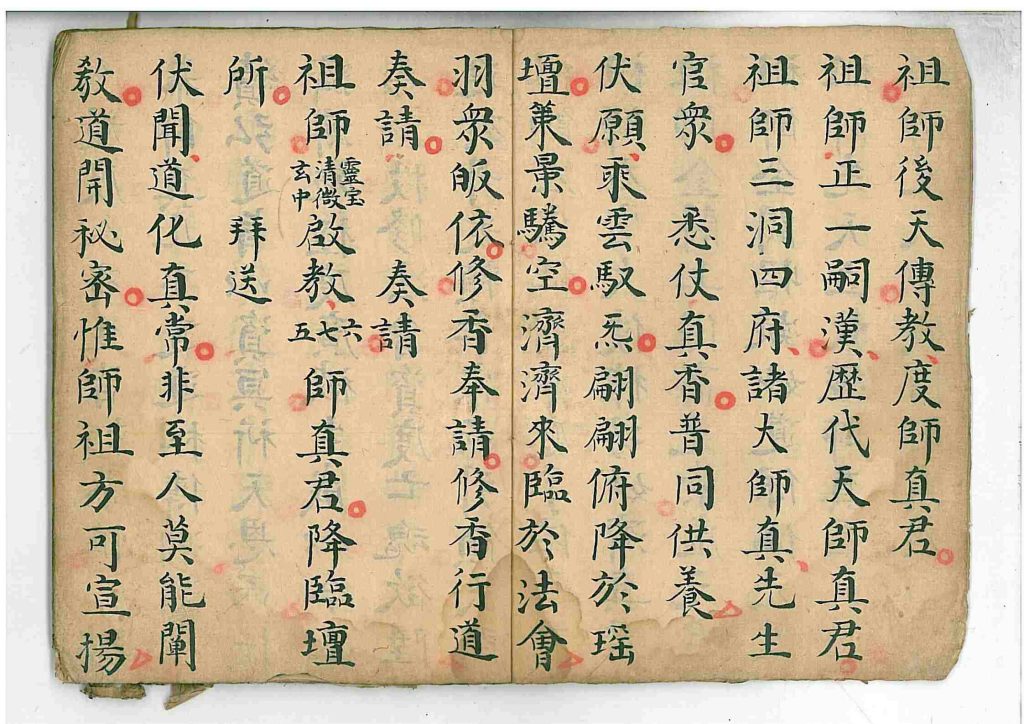 祖師後天傳教度師真君
祖師正一嗣漢歷代天師真君
祖師三洞四府諸大師真先生
官衆 悉仗真香普同供養
伏願乘雲馭炁翩翩俯降於瑶
壇策景驣空濟濟來臨於法會
羽衆皈依修香奉請修香行道
奏請 奏請
祖師靈宝清微玄中啟教六七五師真君降臨壇
所 拜送
伏聞道化真常非至人莫能闡
教道開秘密惟師祖方可宣揚